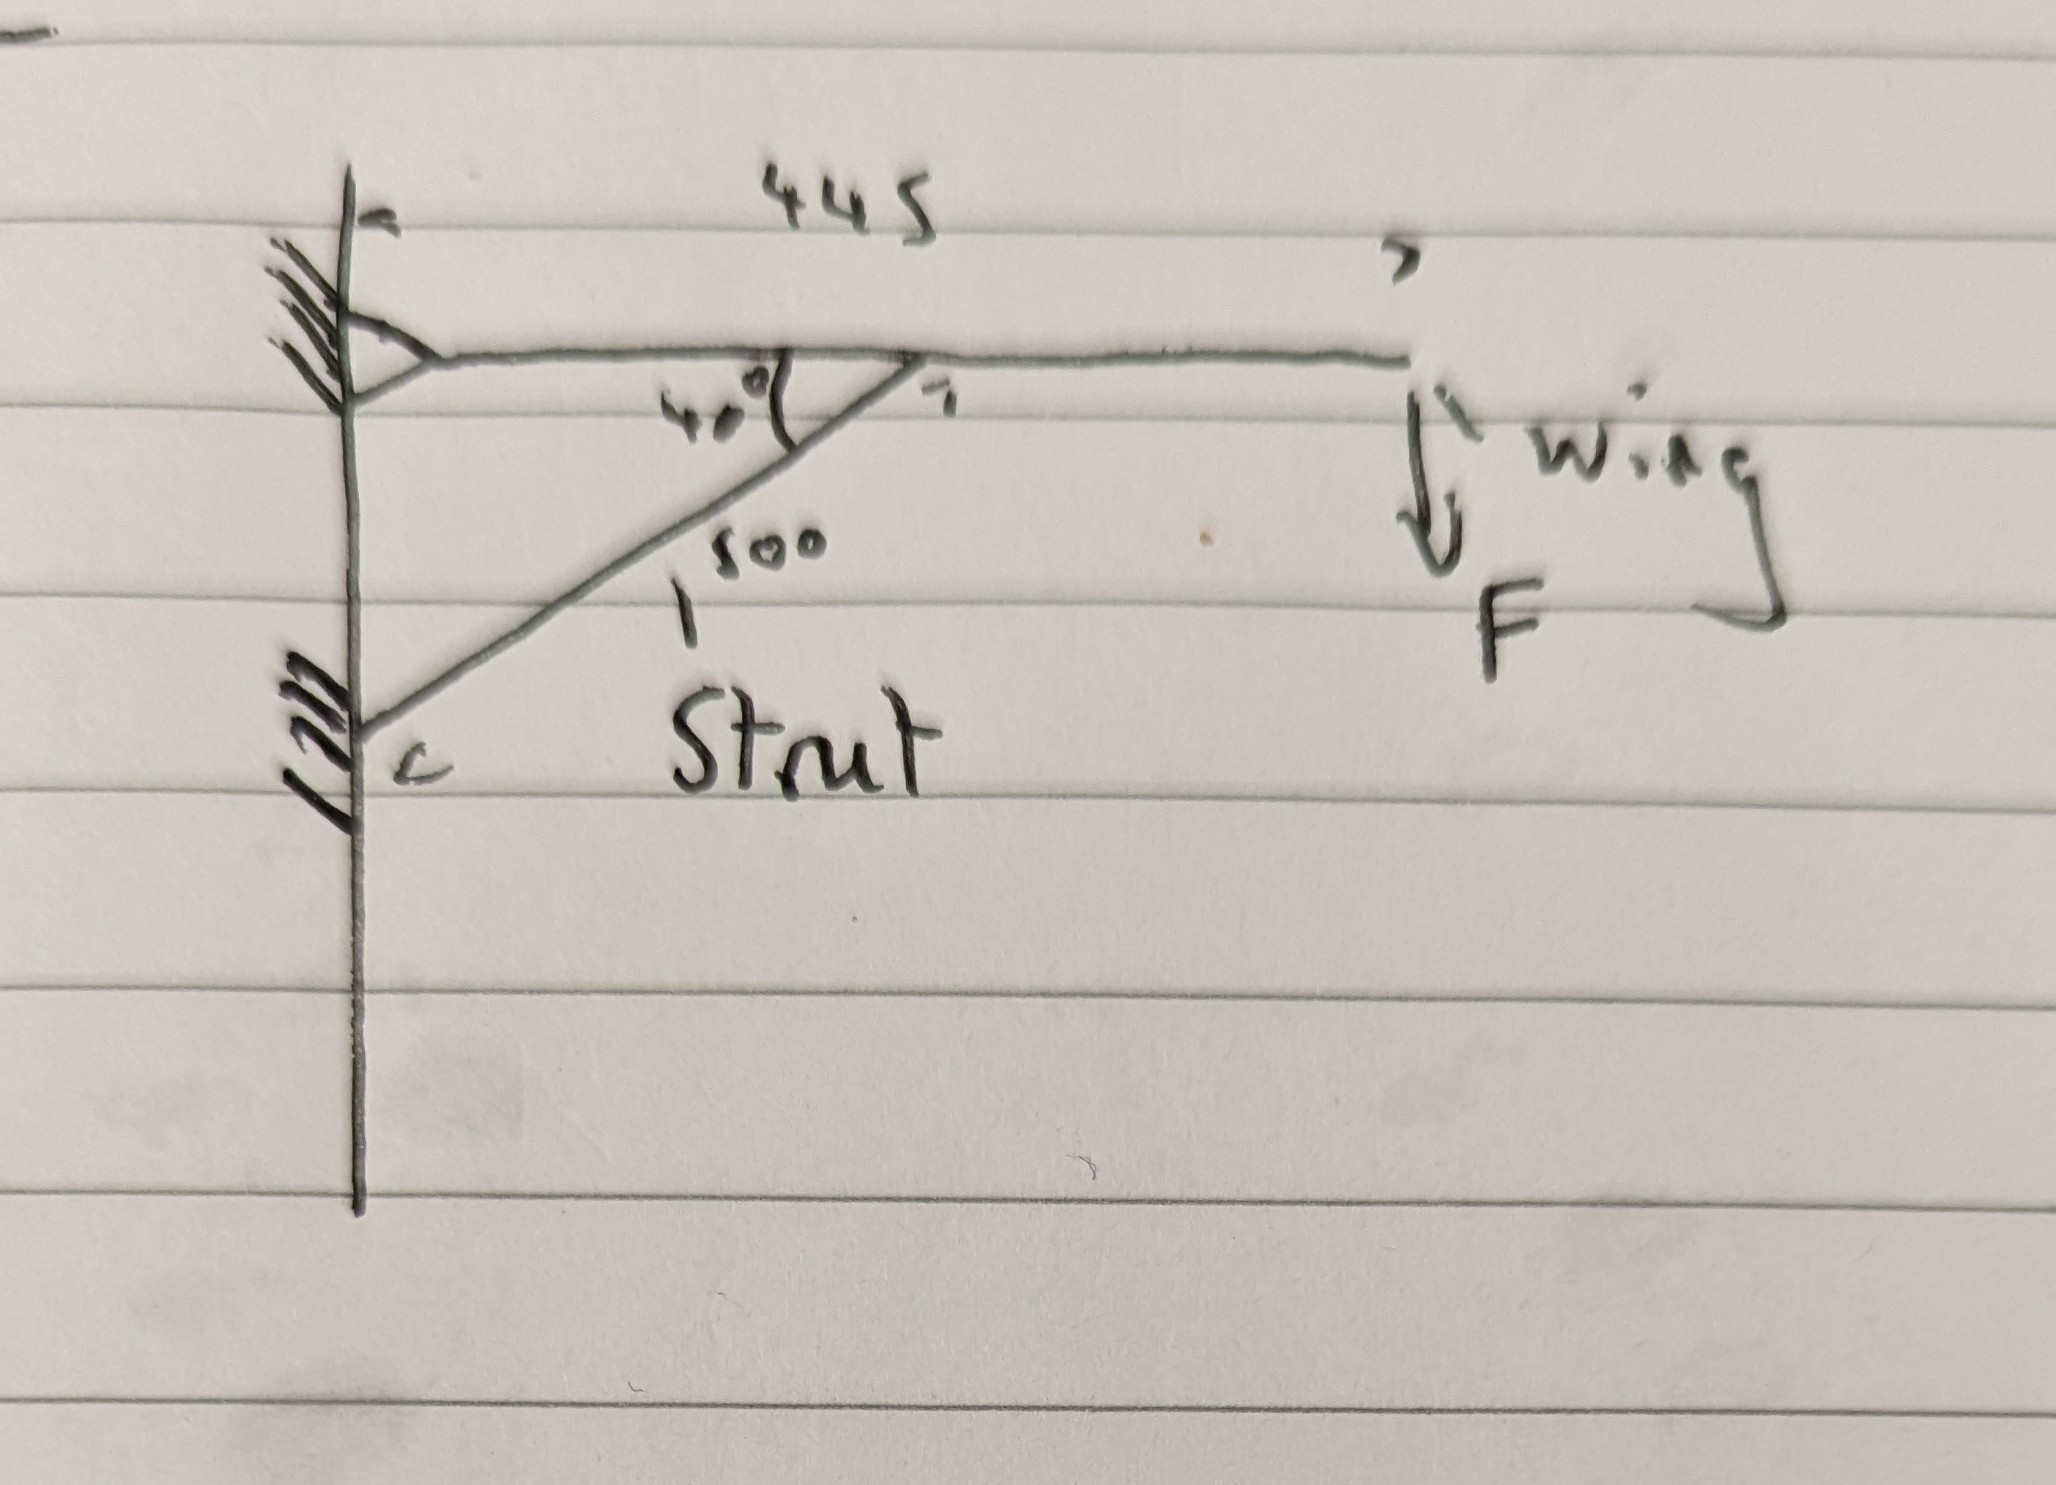 445
40°
Wing
500
F
Strut
C